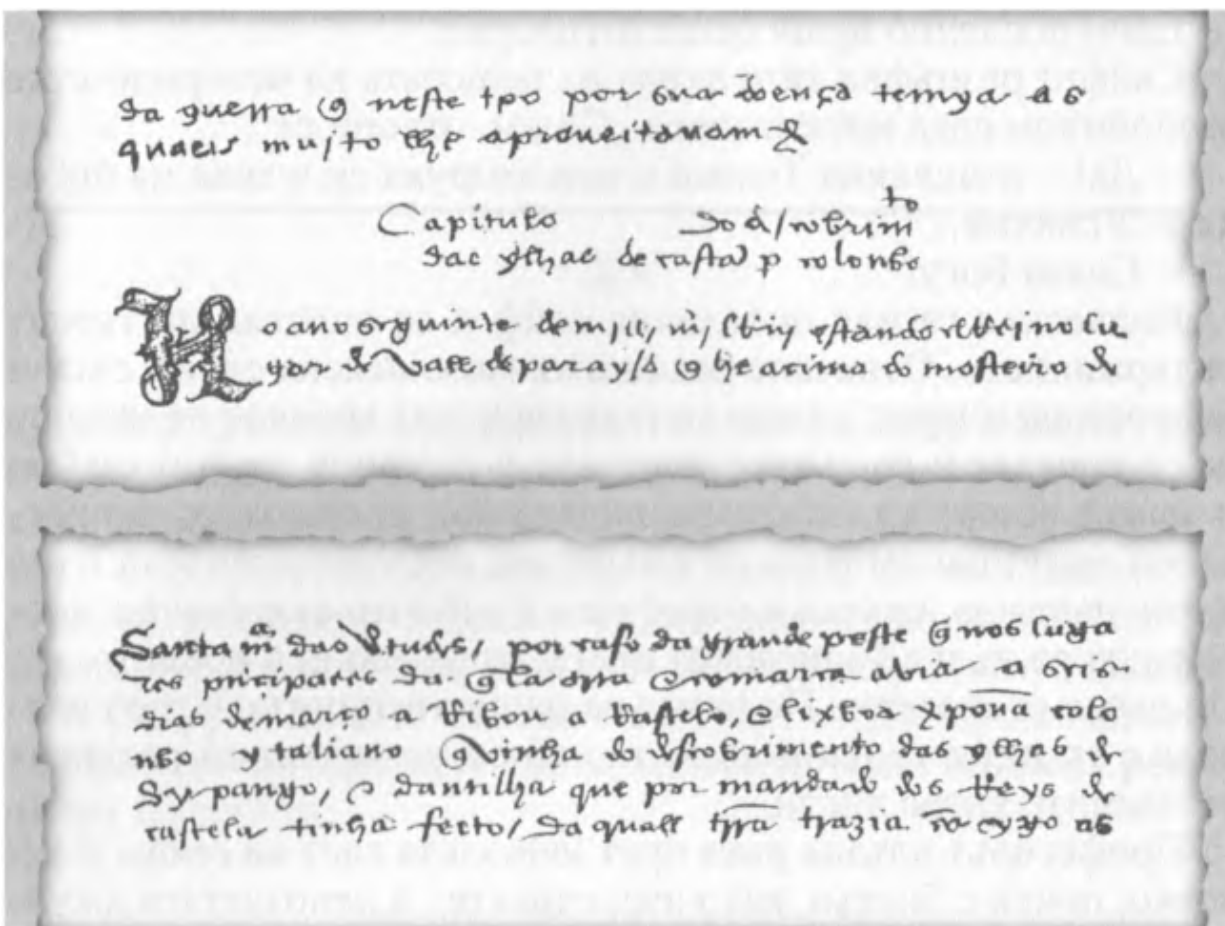 da guerra q̃ neste tpo por sua doença temya as
quaes mujto lhe aproueitauam &
Capitulo do descobrim^to
das ylhas de castela p colonbo
No ano seguinte de mil estando elRei no lu
gar de Vall de parayso q̃ he acima do mosteiro de
Santa m^a das Vtudes, por caso da grande peste q̃ nos luga
res pncipaees da q̃lla comarca avia / a seis
dias de março aRibou a Rastelo, e lixboa colo
nbo ytaliano q̃ vinha do descobrimento das ylhas de
Cypango, e dantilha que por mandado dos Reys de
castela tinha fecto / da quall trra trazia as